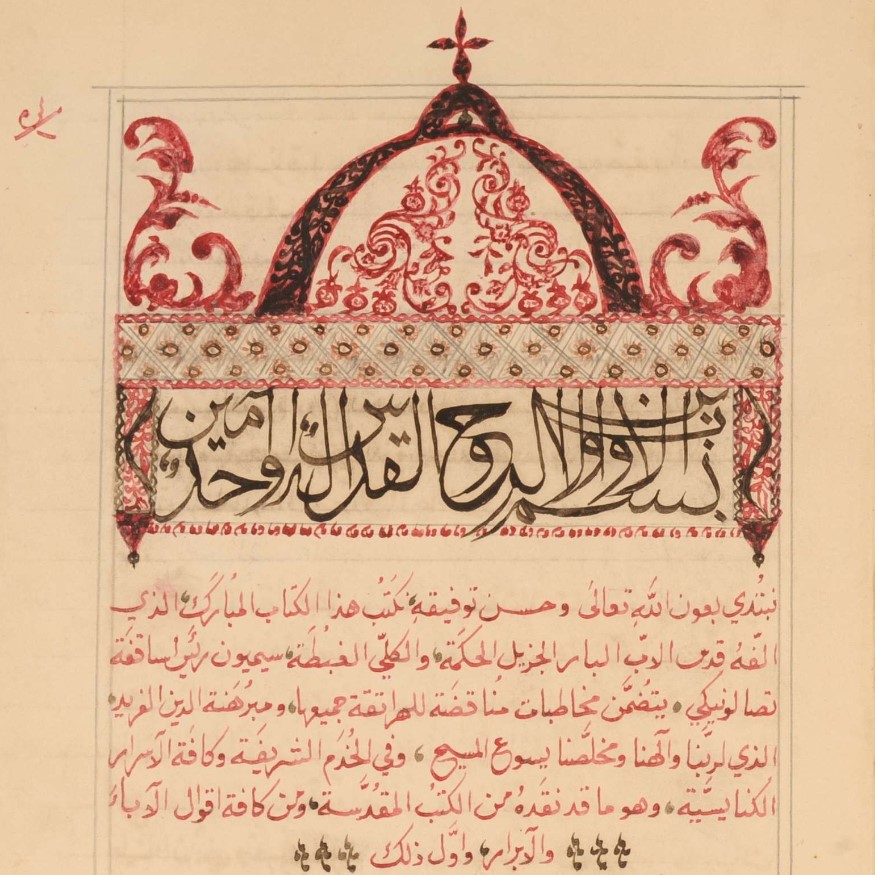 بسم الاب والابن والروح القدس الاله الواحد امين
نبتدي بعون الله تعالى وحسن توفيقهِ نكتبُ هذا الكتاب المبارك الذي
الّفهُ قدس الابّ البار الجزيل الحكمَة، والكلّي الغبطَة، سيميون رئيس اساقفة
تصالونيكي، يتضمّن مخاطبات مُناقضَة للهراتقة جميعها، ومبرهَنة الدين الفريد
الذي لربّنا وآلهنا ومخلّصنا يسوع المسيح، وفي الخُدَم الشريفَة وكافَة الآسرار
الكنايسيّة، وهو ما قد نقدَهُ من الكتبُ المقدّسة، ومن كافة اقوال الآباء
والآبرار، واوّل ذلك